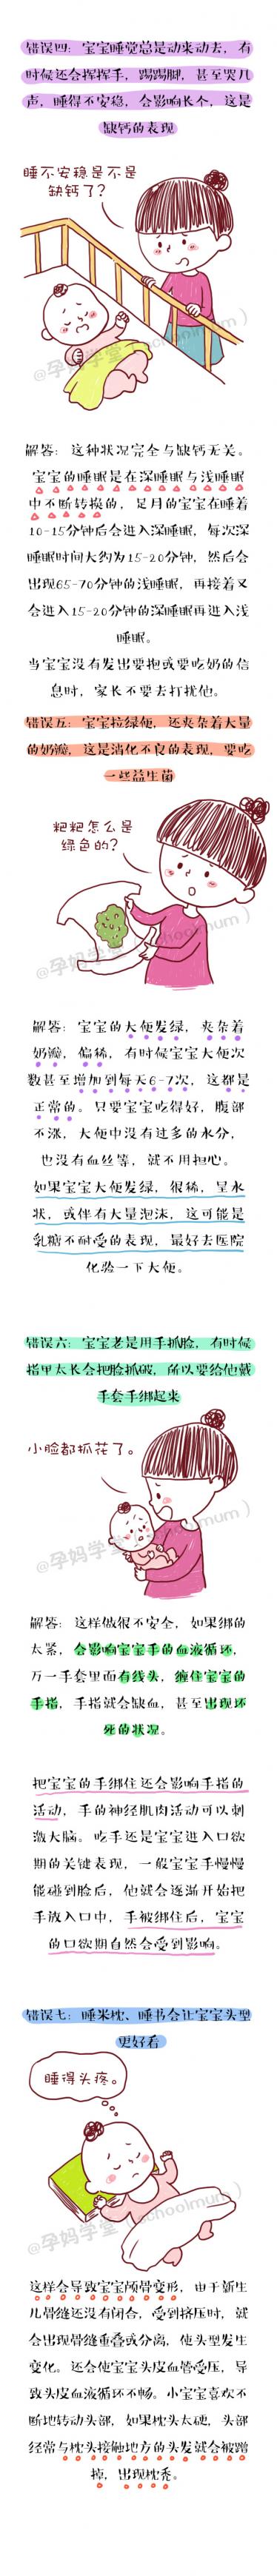 错误四：宝宝睡觉总是动来动去，有
时候还会挥挥手，踢踢脚，甚至哭几
声，睡得不安稳，会影响长个，这是
缺钙的表现
睡不安稳是不是
缺钙了？
@孕妈学堂（schoolmum）
解答：这种状况完全与缺钙无关。
宝宝的睡眠是在深睡眠与浅睡眠
中不断转换的，足月的宝宝在睡着
10-15分钟后会进入深睡眠，每次深
睡眠时间大约为15-20分钟，然后会
出现65-70分钟的浅睡眠，再接着又
会进入15-20分钟的深睡眠再进入浅
睡眠。
当宝宝没有发出要抱或要吃奶的信
息时，家长不要去打扰他。
错误五：宝宝拉绿便，还夹杂着大量
的奶瓣，这是消化不良的表现，要吃
一些益生菌
粑粑怎么是
绿色的？
@孕妈学堂（schoolmum）
解答：宝宝的大便发绿，夹杂着
奶瓣，偏稀，有时候宝宝大便次
数甚至增加到每天6-7次，这都是
正常的。只要宝宝吃得好，腹部
不涨，大便中没有过多的水分，
也没有血丝等，就不用担心。
如果宝宝大便发绿，很稀，呈水
状，或伴有大量泡沫，这可能是
乳糖不耐受的表现，最好去医院
化验一下大便。
错误六：宝宝老是用手抓脸，有时候
指甲太长会把脸抓破，所以要给他戴
手套手绑起来
小脸都抓花了。
@孕妈学堂（schoolmum）
解答：这样做很不安全，如果绑的
太紧，会影响宝宝手的血液循环，
万一手套里面有线头，缠住宝宝的
手指，手指就会缺血，甚至出现坏
死的状况。
把宝宝的手绑住还会影响手指的
活动，手的神经肌肉活动可以刺
激大脑。吃手还是宝宝进入口欲
期的关键表现，一般宝宝手慢慢
能碰到脸后，他就会逐渐开始把
手放入口中，手被绑住后，宝宝
的口欲期自然会受到影响。
错误七：睡米枕、睡书会让宝宝头型
更好看
睡得头疼。
@孕妈学堂（schoolmum）
这样会导致宝宝颅骨变形，由于新生
儿骨缝还没有闭合，受到挤压时，就
会出现骨缝重叠或分离，使头型发生
变化。还会使宝宝头皮血管受压，导
致头皮血液循环不畅。小宝宝喜欢不
断地转动头部，如果枕头太硬，头部
经常与枕头接触地方的头发就会被蹭
掉，出现枕秃。